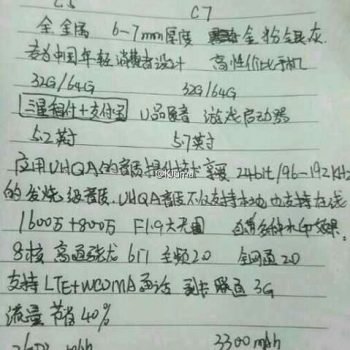 C5 C7
全金属 6-7mm厚度 金 粉 银 灰
专为中国年轻消费者设计 高性价比手机
32G/64G 32G/64G
三星智付+支付宝 U品医音 游戏启动器
5.2英寸 5.7英寸
应用UHQA的音质提升技术 享受 24bit/96-192KHz
的发烧级音质,UHQA音质不仅支持本地也支持在线
1600万+800万 F1.9大光圈 自带多种水印效果
8核 高通骁龙 617 主频2.0 全网通2.0
支持LTE+WCDMA通话 副卡 联通3G
流量节省40%
2600 mAh 3300 mAh
©KJuma